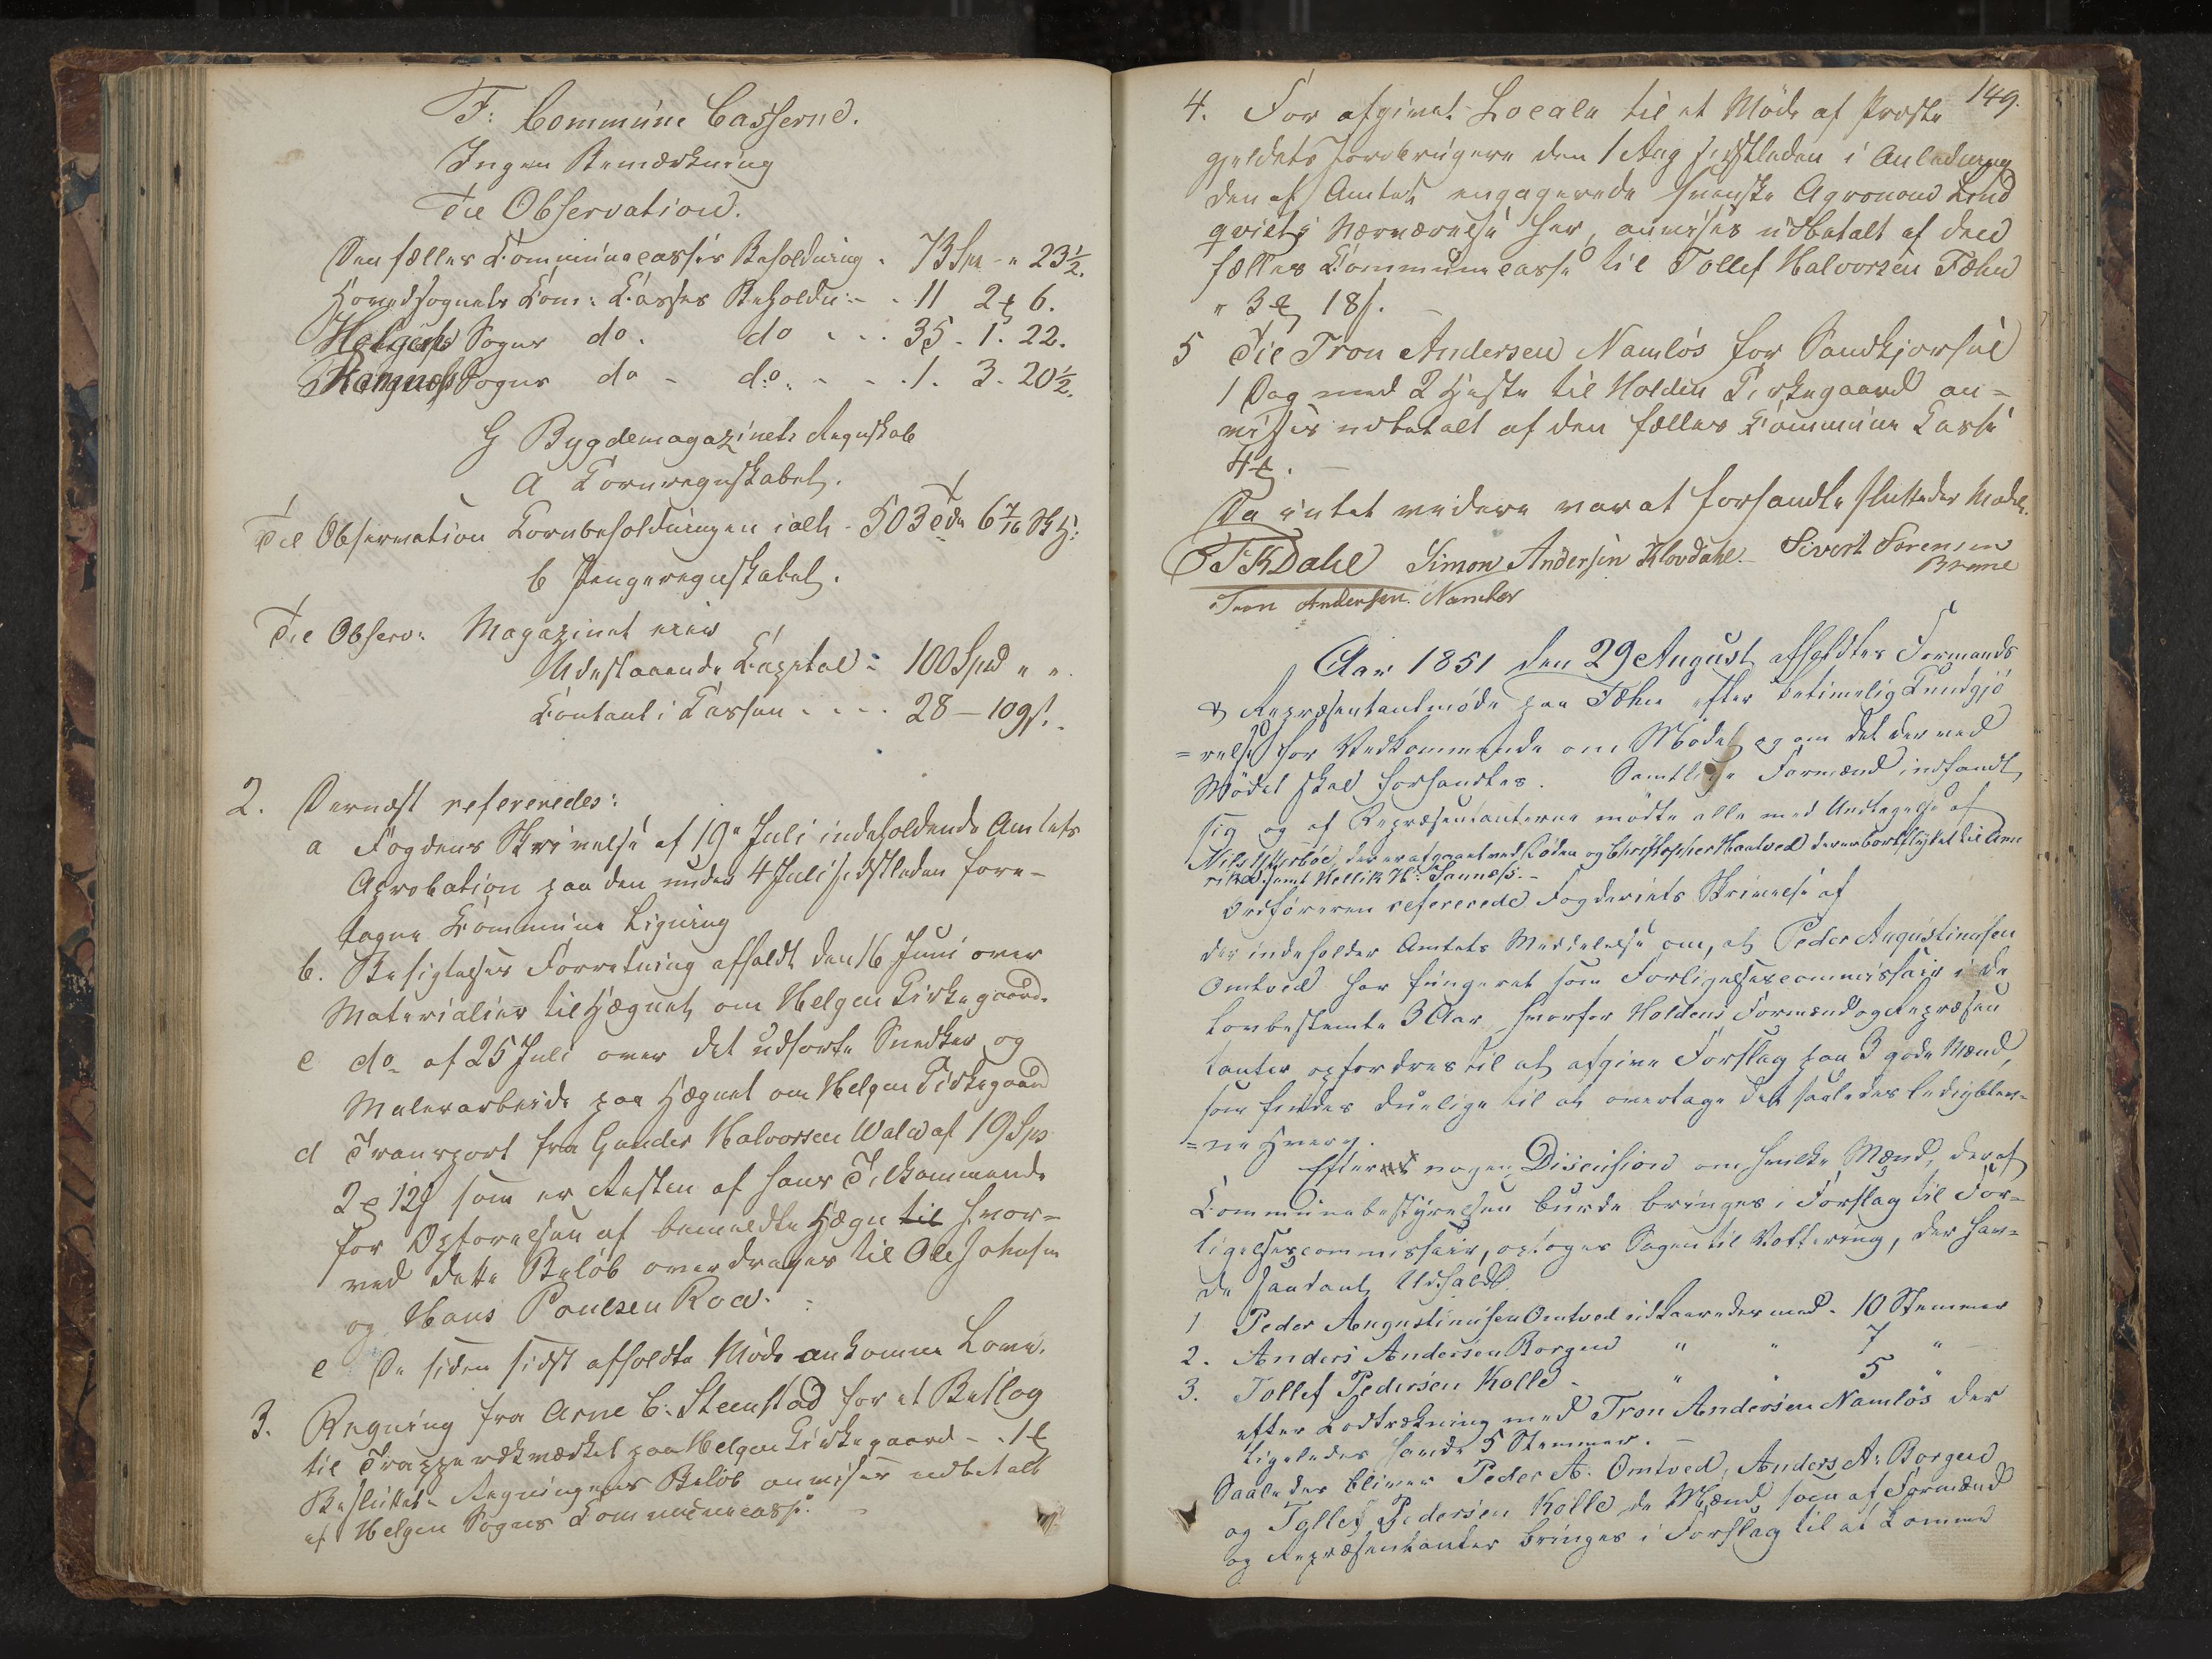 F: Commune Casserne.
Ingen Bemærkning
Til Observation.
Den fælles Communecasses Beholdning - 73 Spd - " 23½.
Hovedsognets Com: Casses Beholdn: - - 11 2 6.
Helgens Sogns do. do - - - 35 - 1. 22.
Sogns do - do. - - - 1. 3. 20½.
G Bygdemagazinets Regnskab
a Cornregnskabet.
Til Observation Cornbeholdningen ialt - 503 6 7/16
b Pengeregnskabet.
Til Observ: Magazinet eier
Udestaaende Capital - 100 Spd " "
Contant i Cassen - - - - 28 - 109 s.
2. Dernæst refereredes:
a Fogdens Skrivelse af 19e Juli indeholdende Amtets
Aprobation paa den under 4 Juli sidstleden fore-
tagne Commune Ligning
b. Besigtelses Forretning afholdt den 16 Juni over
Materialier til Hægnet om Helgen Kirkegaard.
c do af 25 Juli over det udførte Snedker og
Malerarbeide paa Hægnet om Helgen Kirkegaard
d Transport fra Gunder Halvorsen Wala af 19 Spd
2 12 s som er Resten af hans Tilkommende
for Opførelsen af bemeldte Hægn til hvor-
ved dette Beløb overdrages til Ole Johnsen
og Hans Poulsen Roa.
e De siden sidst afholdte Møde ankomne Love.
3. Regning fra Arne C: Steenstad for et Beslag
til paa Helgen Kirkegaard - . 1
Besluttet - Regningens Beløb anvises udbetalt
af Helgen Sogns Communecasse.
149.
4. For afgivet Locale til et Møde af Præste
gjeldets Jordbrugere den 1 Aug sidstleden i Anledning
den af Amtet engagerede svenske Agronom Lind
qvists Nærværelse her, anvises udbetalt af den
fælles Communecasse til Tollef Halvorsen Fæhn
" 3 18 s.
5 Til Tron Andersen Namløs for Sandkjørsel
1 Dag med 2 Heste til Holden Kirkegaard an-
vises udbetalt af den fælles Commune Casse
4 .
Da intet videre var at forhandle sluttedes Mødet.
Dahl Simon Andersen Klovdahl. Sivert Sørensen
Tron Andersen. Namløs
Aar 1851 den 29 August afholdtes Formands
& Repræsentantmøde paa Fæhn efter betimelig Kundgjø
=relse for Vedkommende om Mødet og om det der ved
Mødet skal forhandles. Samtlige Formænd indfandt
sig og af Repræsentanterne mødte alle med Undtagelse af
Nils Ytterbøe, der er afgaaet ved Døden og Christopher Haatved der er bortflyttet til Ame
rika samt Hellik H: Sannæs. -
Ordføreren refererede Fogderiets Skrivelse af
der indeholder Amtets Meddelelse om, at Peder Augustinusen
Omtved har fungeret som Forligelsescommissair i de
lovbestemte 3 Aar hvorfor Holdens Formænd og Repræsen
tanter opfordres til at afgive Forslag paa 3 gode Mænd,
som findes duelige til at overtage det saaledes ledigblev-
=ne Hverv.
Efter nogen Discusion om hvilke Mænd, der af
Communebestyrelsen burde bringes i Forslag til For-
ligelsescommissair, optoges Sagen til Vottering, der hav-
de saadant Udfald.
1 Peder Augustinusen Omtved udkaaredes med - 10 Stemmer
2. Anders Andersen Borgen " " 7 "
3. Tollef Pedersen Kolle - " " 5 "
efter Lodtrækning med Tron Andersen Namløs der
ligeledes havde 5 Stemmer. -
Saaledes bliver Peder A. Omtved, Anders A: Borgen
og Tollef Pedersen Kolle de Mænd som af Formænd
og Repræsentanter bringes i Forslag til at komme